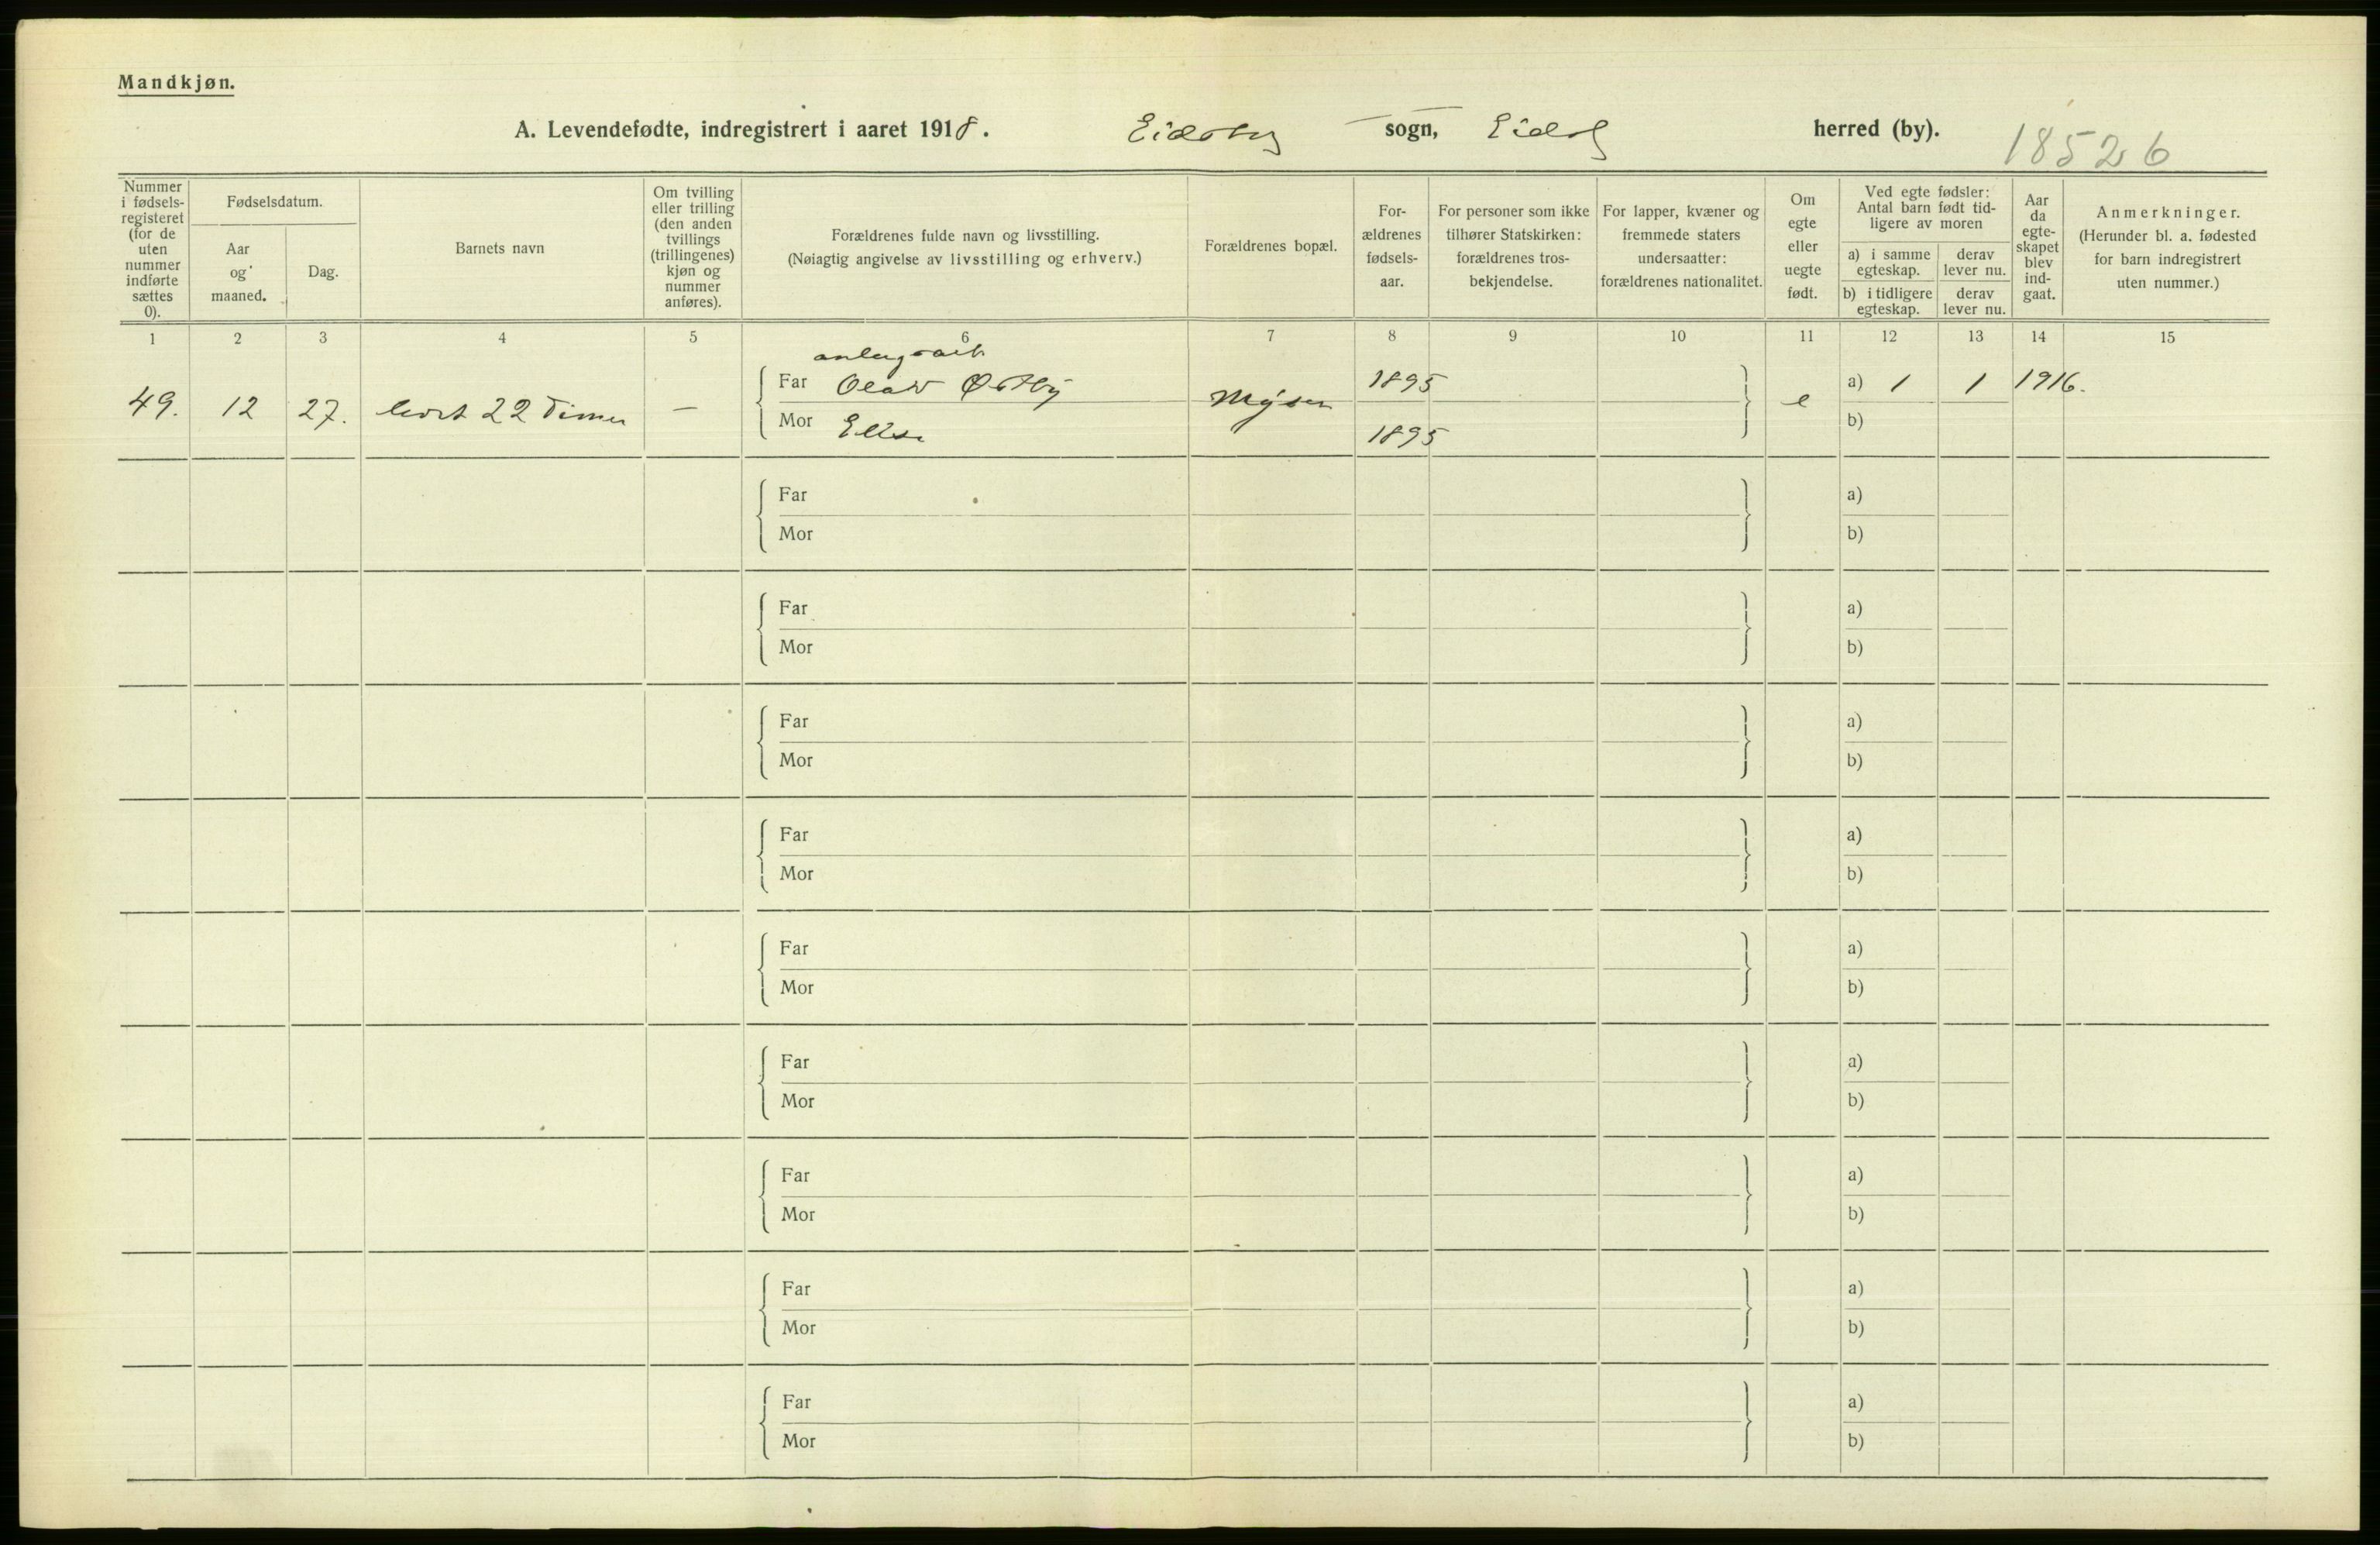 Mandkjøn.
A. Levendefødte, indregistrert i aaret 1918. Eidsberg sogn, Eidsb herred (by).
18526
Nummer i fødsels-registeret (for de uten nummer indførte sættes 0).
Fødselsdatum.
Aar og maaned.
Dag.
Barnets navn
Om tvilling eller trilling (den anden tvillings (trillingenes) kjøn og nummer anføres).
Forældrenes fulde navn og livsstilling.
(Nøiagtig angivelse av livsstilling og erhverv.)
Forældrenes bopæl.
For-ældrenes fødsels-aar.
For personer som ikke tilhører Statskirken: forældrenes tros-bekjendelse.
For lapper, kvæner og fremmede staters undersaatter: forældrenes nationalitet.
Om egte eller uegte født.
Ved egte fødsler: Antal barn født tid-ligere av moren
a) i samme egteskap.
derav lever nu.
b) i tidligere egteskap.
derav lever nu.
Aar da egte-skapet blev ind-gaat.
Anmerkninger.
(Herunder bl. a. fødested for barn indregistrert uten nummer.)
1 2 3 4 5 6 7 8 9 10 11 12 13 14 15
anlegsarb
49. 12 27. levet 22 Timer — Far Olav Østby Mysen 1895 e a) 1 1 1916.
Mor Ellse 1895 b)
Far a)
Mor b)
Far a)
Mor b)
Far a)
Mor b)
Far a)
Mor b)
Far a)
Mor b)
Far a)
Mor b)
Far a)
Mor b)
Far a)
Mor b)
Far a)
Mor b)